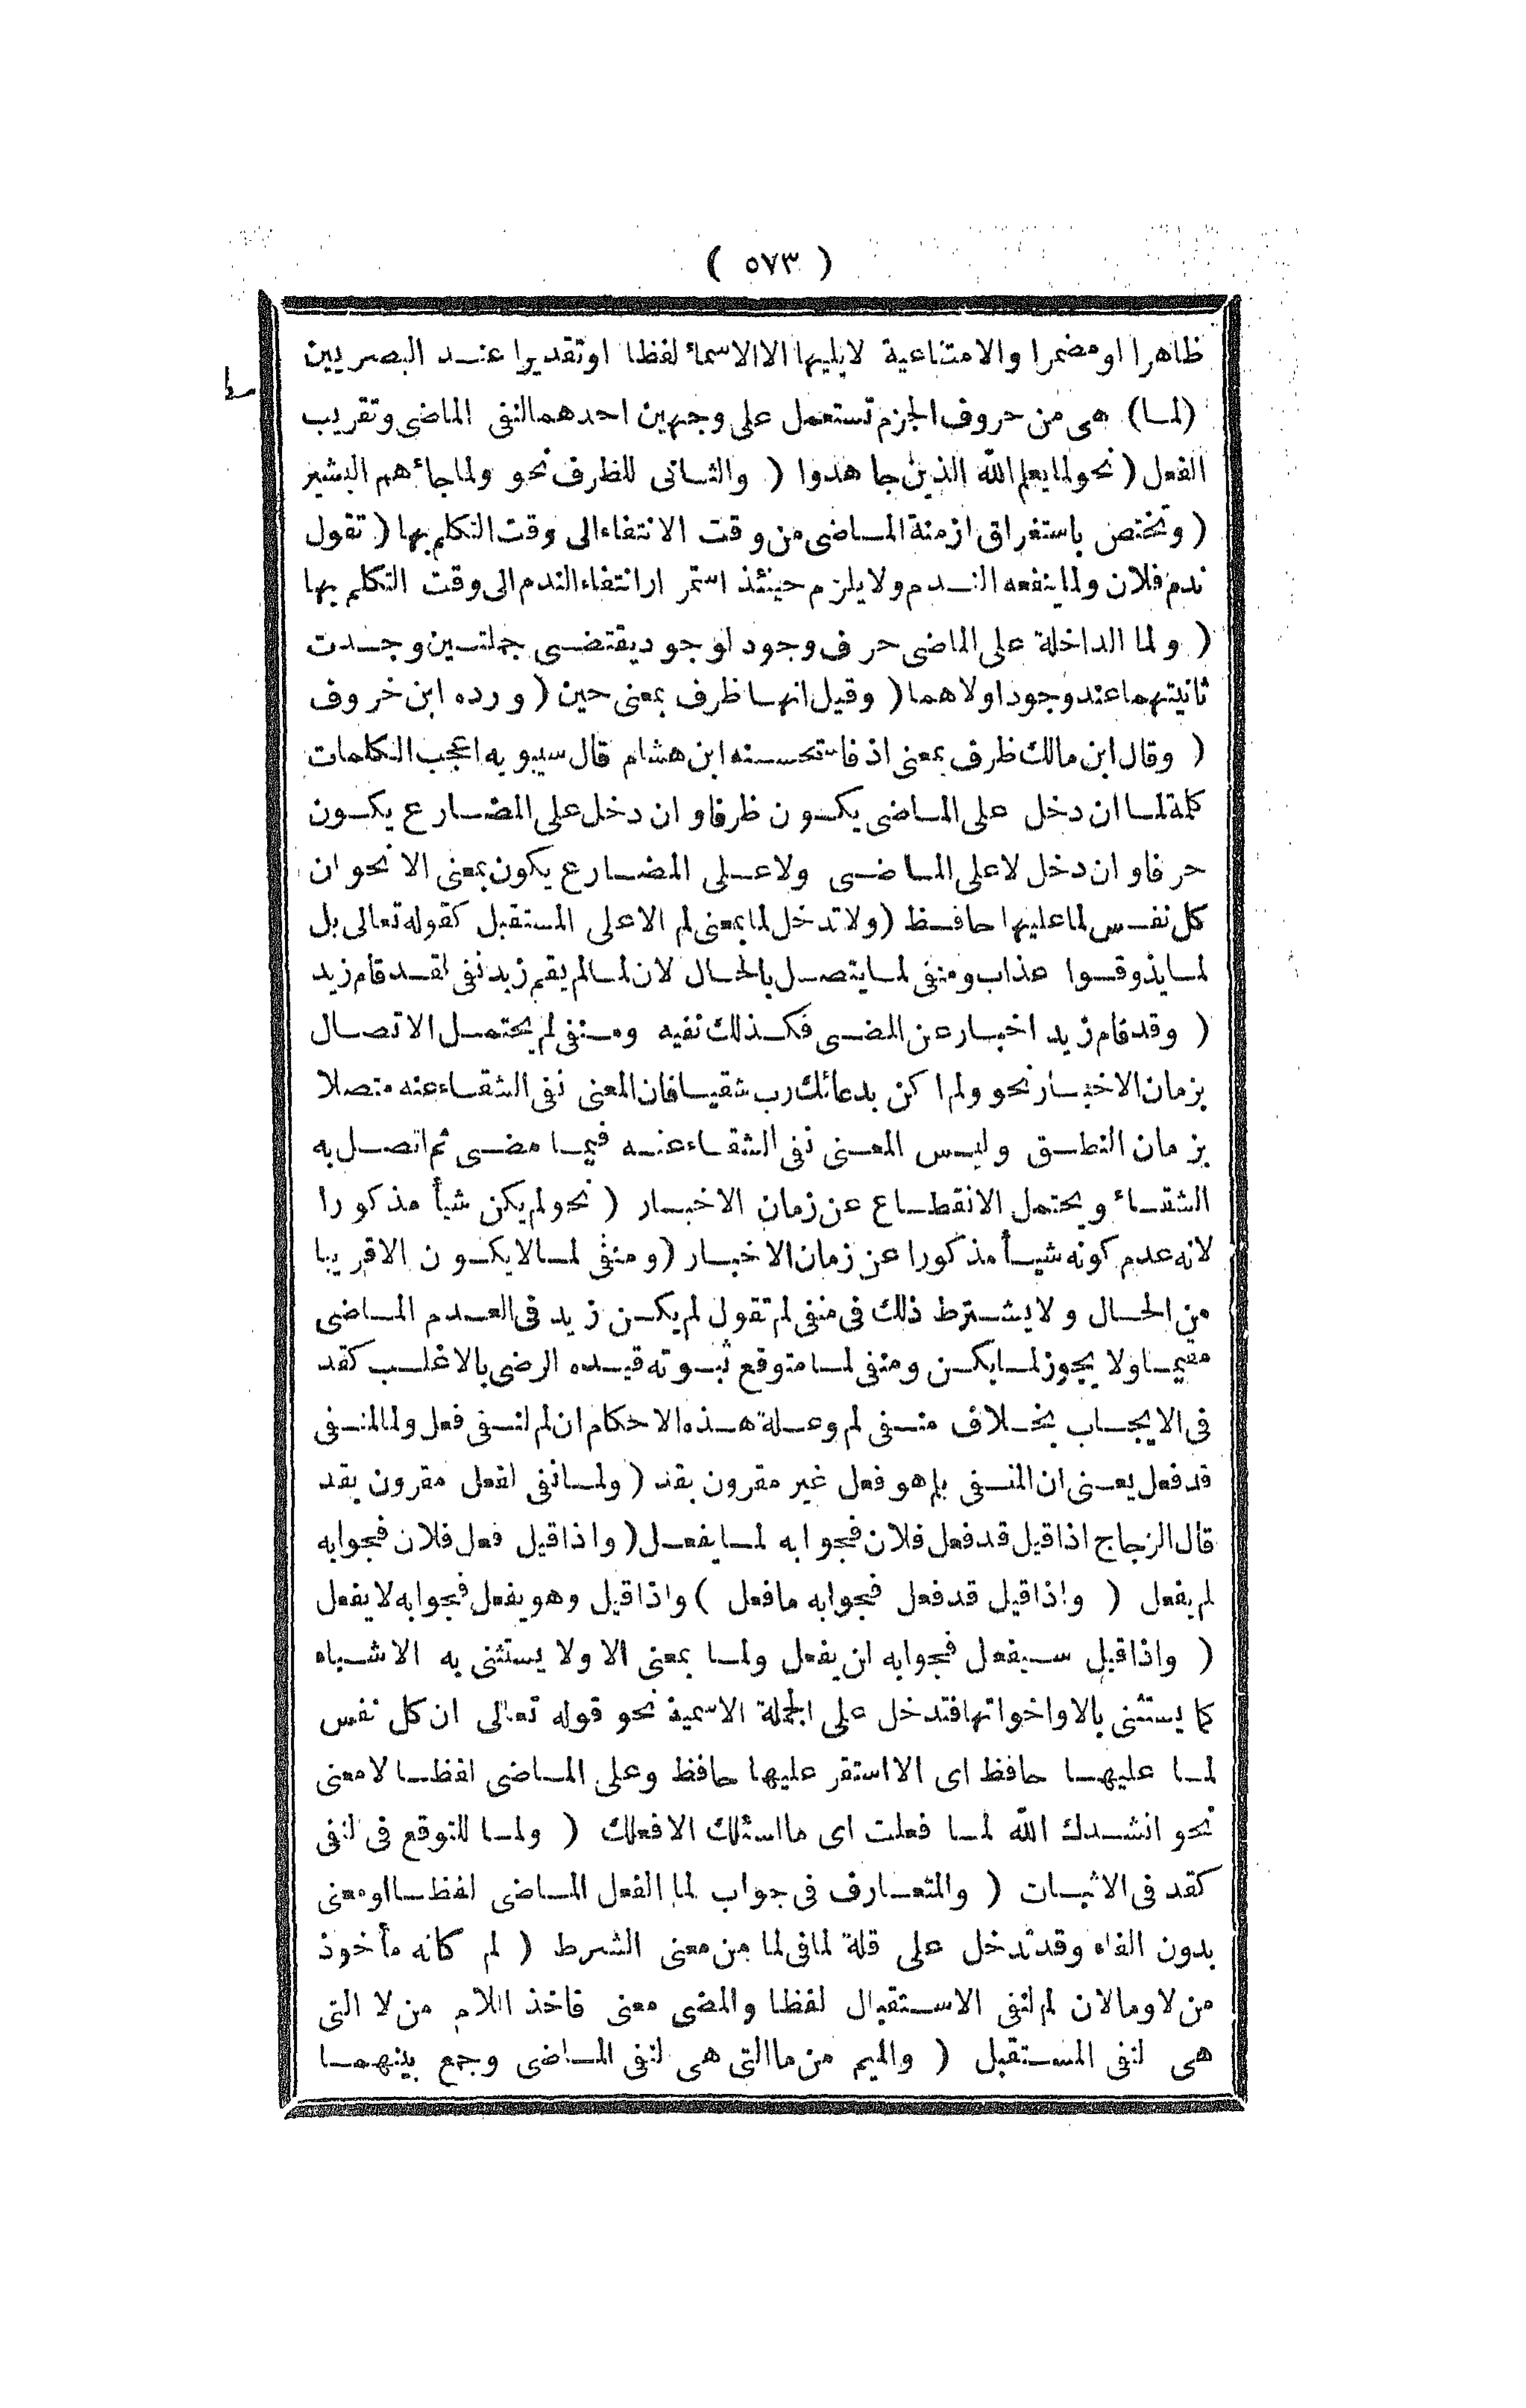 ( ٥٧٣ )
ظاهرا او مضمرا والامتناعية لايليها الا الاسماء لفظا او تقديرا عند البصريين
(لما) هى من حروف الجزم تستعمل على وجهين احدهما لنفى الماضى وتقريب
الفعل ( نحو لما يعلم الله الذين جاهدوا ( والثانى للظرف نحو ولما جاءهم البشير
( وتختص باستغراق ازمنة الماضى من وقت الانتفاء الى وقت التكلم بها ( تقول
ندم فلان ولما ينفعه الندم ولا يلزم حينئذ استمرار انتفاء الندم الى وقت التكلم بها
( ولما الداخلة على الماضى حرف وجود لوجود يقتضى جملتين وجدت
ثانيتهما عند وجود اولاهما ( وقيل انها ظرف بمعنى حين ( ورده ابن خروف
( وقال ابن مالك ظرف بمعنى اذ فاستحسنه ابن هشام قال سيبويه اعجب الكلمات
كلمة لما ان دخل على الماضى يكون ظرفا وان دخل على المضارع يكون
حرفا وان دخل لا على الماضى ولا على المضارع يكون بمعنى الا نحو ان
كل نفس لما عليها حافظ ( ولا تدخل لما بمعنى لم الا على المستقبل كقوله تعالى بل
لما يذوقوا عذاب ومنفى لما يتصل بالحال لان لما لم يقم زيد نفى لقد قام زيد
( وقد قام زيد اخبار عن المضى فكذلك نفيه ومنفى لم يحتمل الاتصال
بزمان الاخبار نحو ولم اكن بدعائك رب شقيا فان المعنى نفى الشقاء عنه متصلا
بزمان النطق وليس المعنى نفى الشقاء عنه فيما مضى ثم اتصل به
الشقاء ويحتمل الانقطاع عن زمان الاخبار ( نحو لم يكن شيأ مذكورا
لانه عدم كونه شيأ مذكورا عن زمان الاخبار ( ومنفى لما لا يكون الا قريبا
من الحال ولا يشترط ذلك فى منفى لم تقول لم يكن زيد فى العدم الماضى
مقيما ولا يجوز لما يكن ومنفى لما متوقع ثبوته قيده الرضى بالاغلب كقد
فى الايجاب بخلاف منفى لم وعلة هذه الاحكام ان لم لنفى فعل ولما لنفى
قد فعل يعنى ان المنفى بلم هو فعل غير مقرون بقد ( ولما نفى لفعل مقرون بقد
قال الزجاج اذا قيل قد فعل فلان فجوابه لما يفعل ( واذا قيل فعل فلان فجوابه
لم يفعل ( واذا قيل قد فعل فجوابه ما فعل ) واذا قيل وهو يفعل فجوابه لا يفعل
( واذا قيل سيفعل فجوابه ان يفعل ولما بمعنى الا ولا يستثنى به الاشياه
كما يستثنى بالا واخواتها فتدخل على الجملة الاسمية نحو قوله تعالى ان كل نفس
لما عليها حافظ اى الا استقر عليها حافظ وعلى الماضى لفظا لا معنى
نحو انشدك الله لما فعلت اى ما اسئلك الا فعلك ( ولما للتوقع فى لنفى
كقد فى الاثبات ( والمتعارف فى جواب لما الفعل الماضى لفظا او معنى
بدون الفاء وقد تدخل على قلة لما فى لما من معنى الشرط ( لم كانه مأخوذ
من لا وما لان لم لنفى الاستقبال لفظا والمضى معنى فاخذ اللام من لا التى
هى لنفى المستقبل ( والميم من ما التى هى لنفى الماضى وجمع بينهما